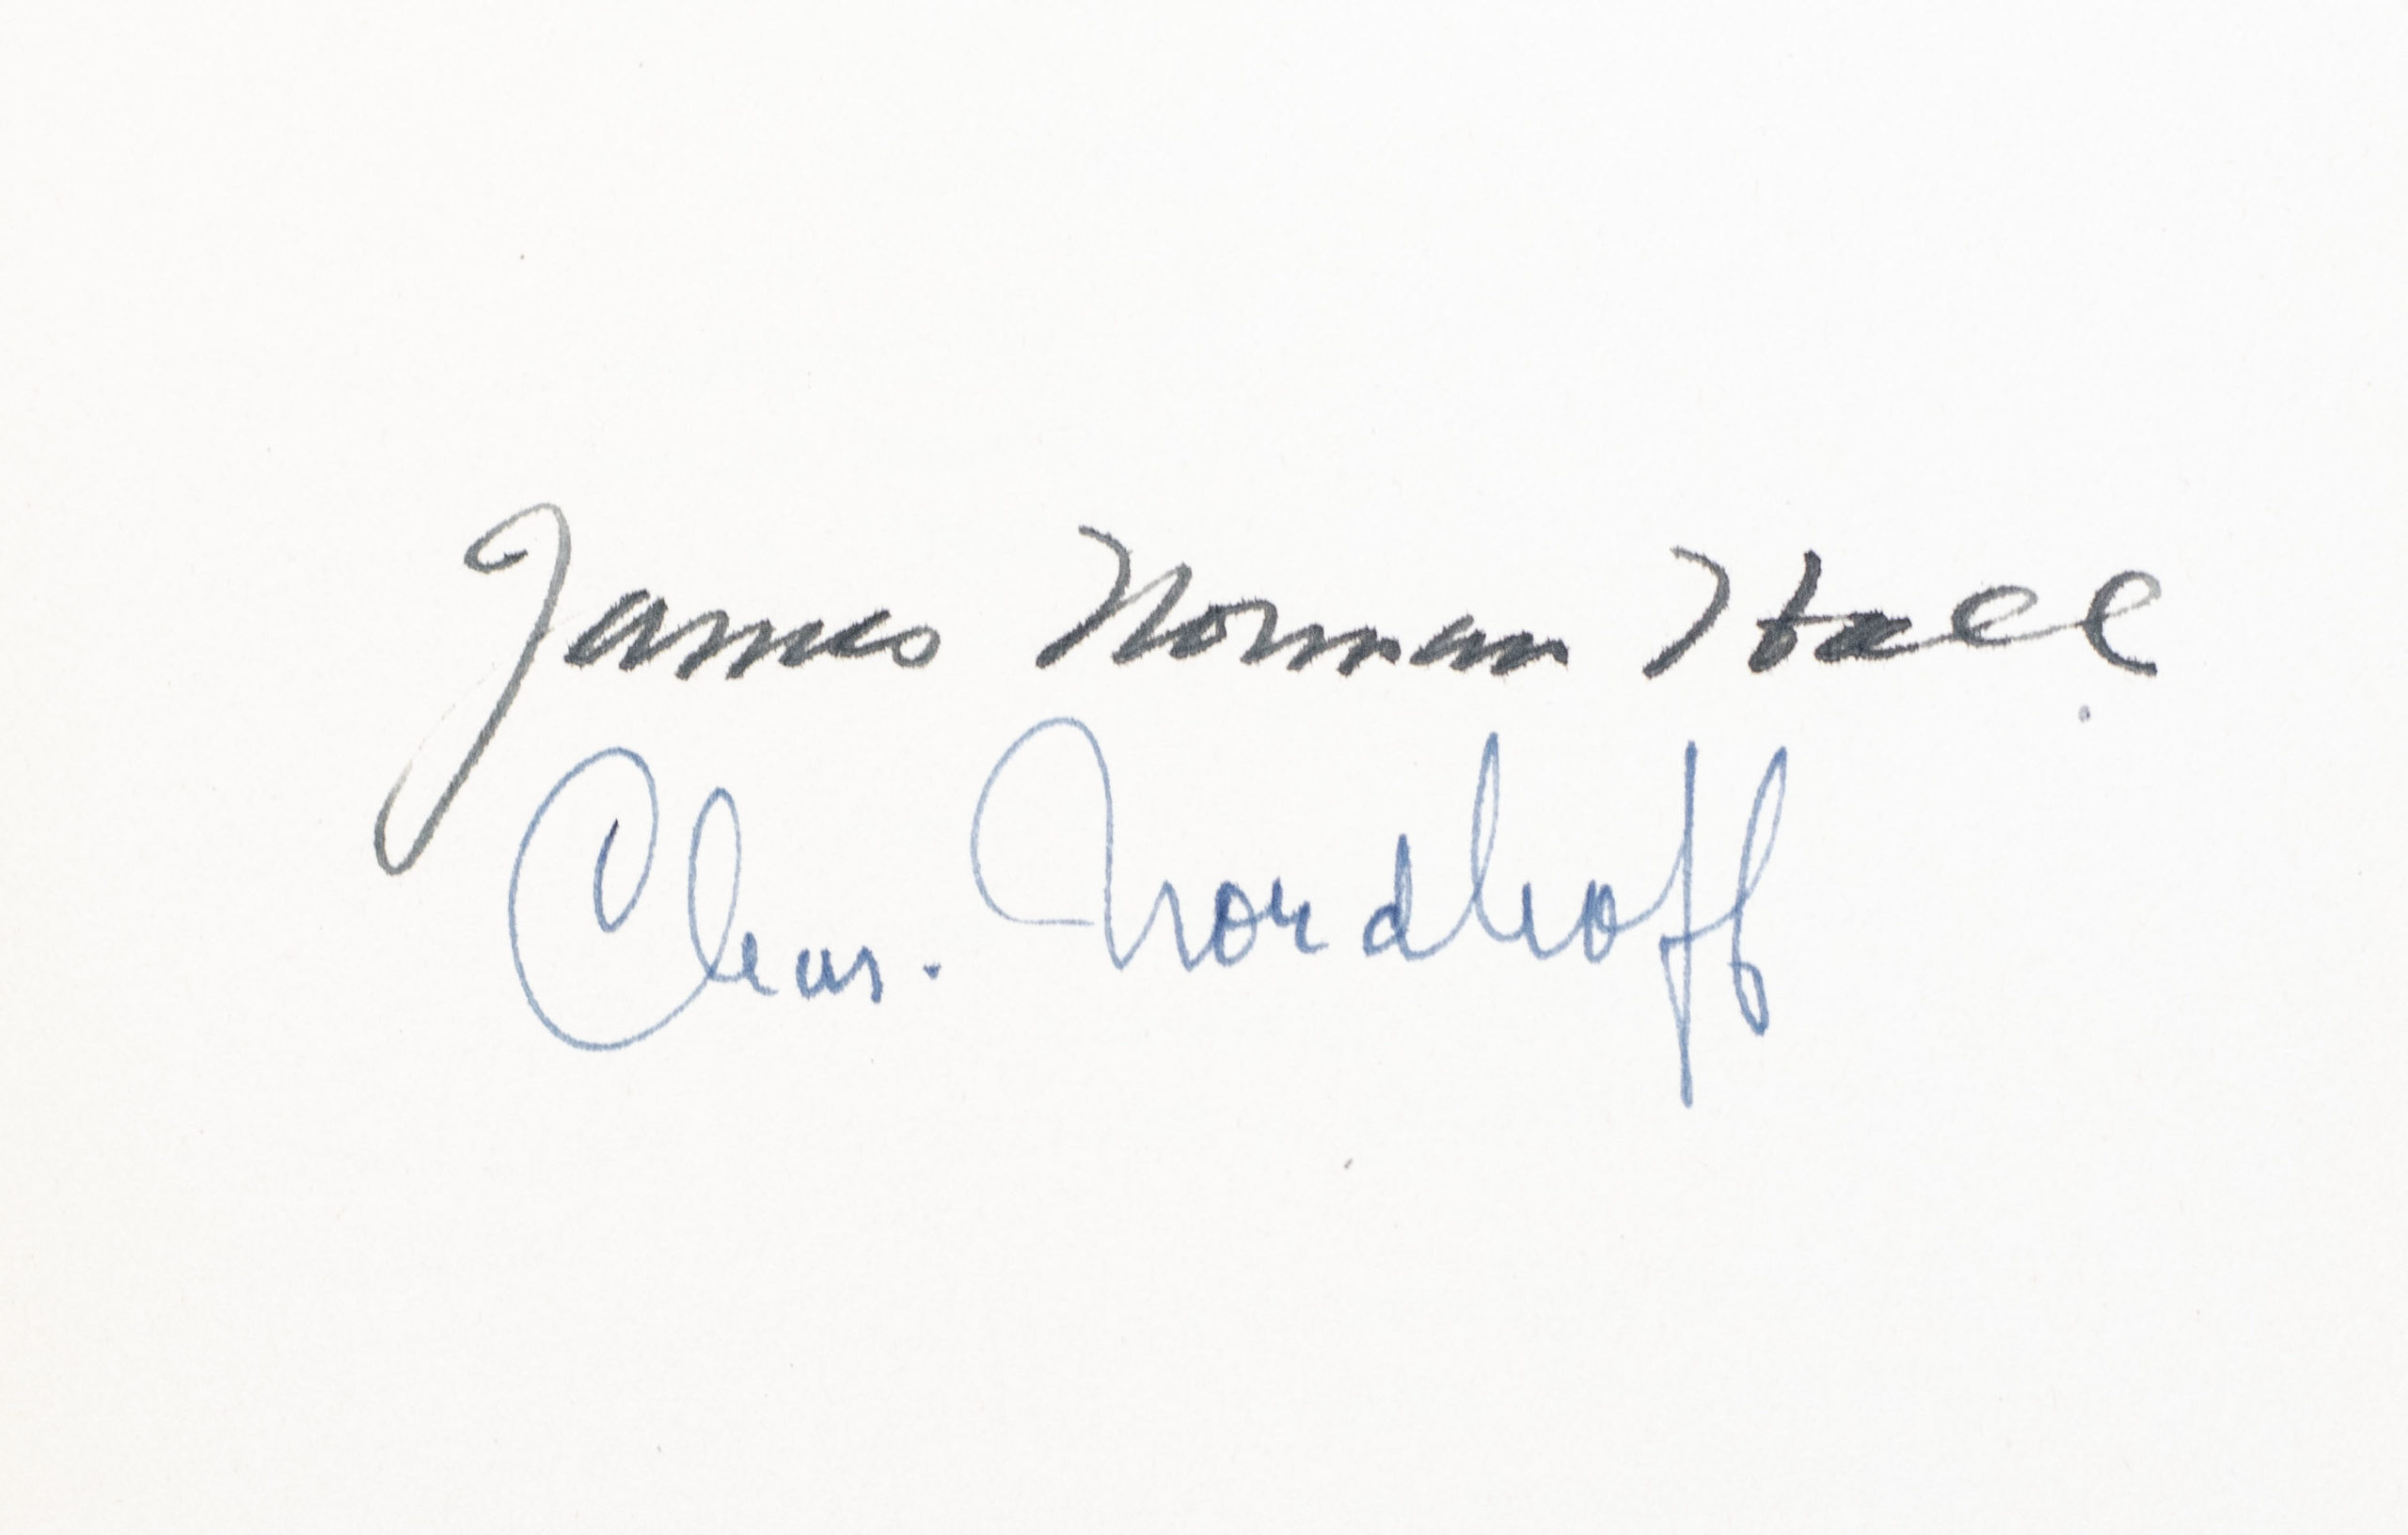 James Norman Hall
Chas. Nordhoff